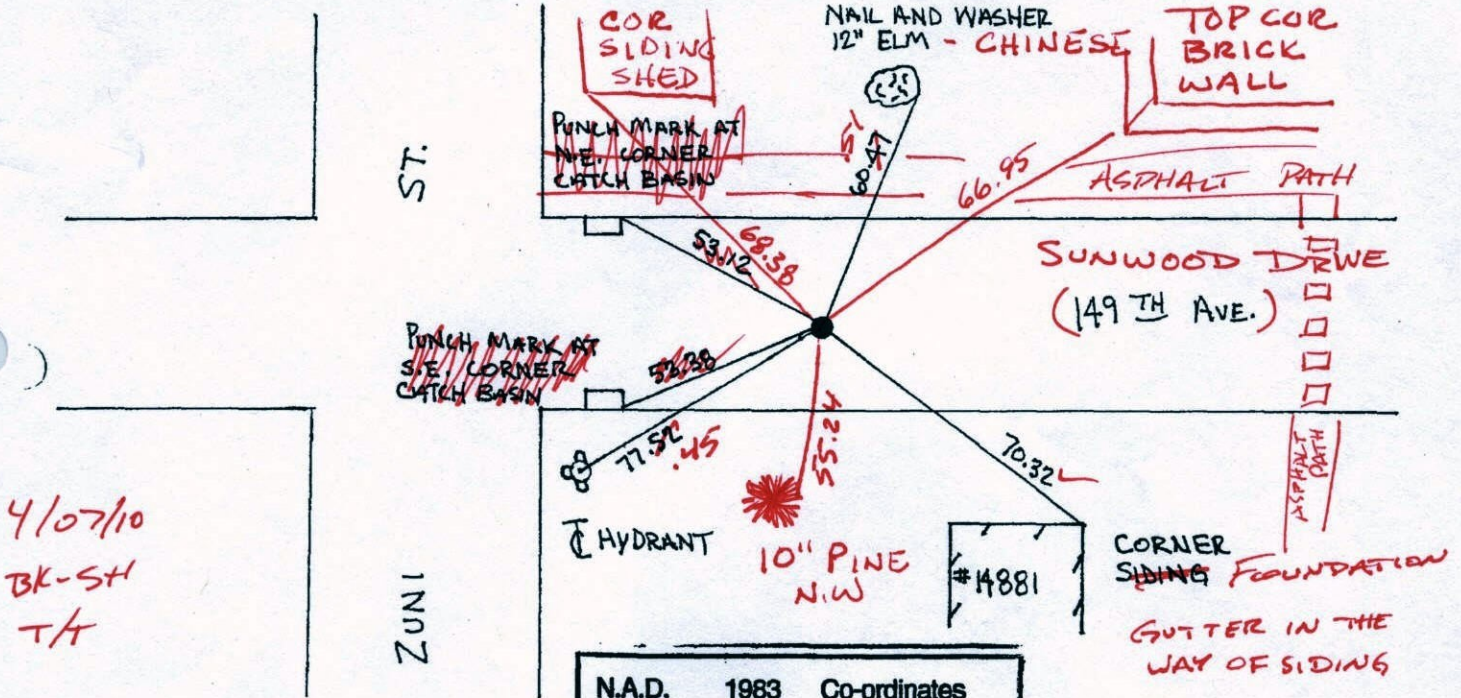 COR
SIDING
SHED
NAIL AND WASHER
12" ELM - CHINESE
TOP COR
BRICK
WALL
PUNCH MARK AT
N.E. CORNER
CATCH BASIN
.51
60.47
66.95
ASPHALT PATH
ST.
53.12
68.38
SUNWOOD DRIVE
(149 TH AVE.)
PUNCH MARK AT
S.E. CORNER
CATCH BASIN
53.38
77.52
.45
55.24
70.32
ASPHALT
PATH
4/07/10
BK-SH
T/T
HYDRANT
10" PINE
N.W
#14881
CORNER
SIDING FOUNDATION
GUTTER IN THE
WAY OF SIDING
ZUNI
N.A.D. 1983 Co-ordinates